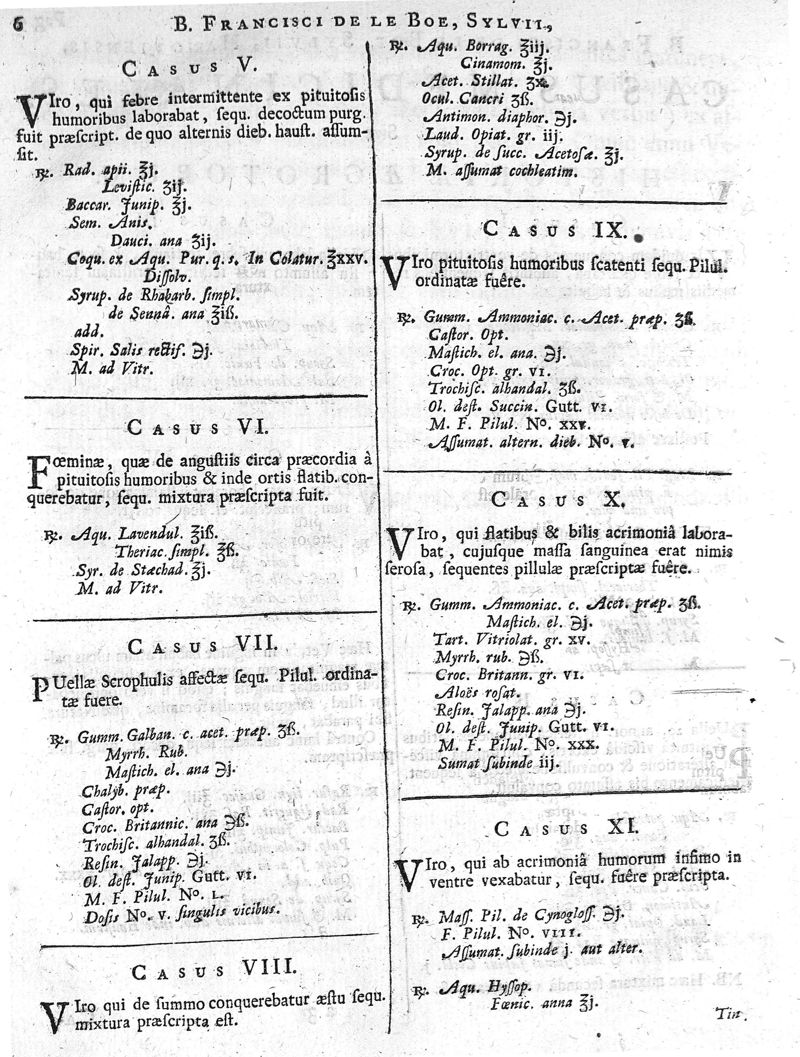 6
B. FRANCISCI DE LE BOE, SYLVII,
CASUS V.
VIro, qui febre intermittente ex pituitosis
humoribus laborabat, ſequ. decoctum purg.
fuit præſcript. de quo alternis dieb. hauſt. aſſum-
ſit.
℞. Rad. apii. ℥j.
Leviſtic. ʒij.
Baccar. Junip. ʒj.
Sem. Anis.
Dauci. ana ʒij.
Coqu. ex Aqu. Pur. q. s. In Colatur. ℥xxv.
Diſſolv.
Syrup. de Rhabarb. ſimpl.
de Sennâ. ana ℥iß.
add.
Spir. Salis rectif. ℈j.
M. ad Vitr.
CASUS VI.
Fœminæ, quæ de anguſtiis circa præcordia à
pituitoſis humoribus & inde ortis flatib. con-
querebatur, ſequ. mixtura præſcripta fuit.
℞. Aqu. Lavendul. ℥iß.
Theriac. ſimpl. ℥ß.
Syr. de Stæchad. ℥j.
M. ad Vitr.
CASUS VII.
PUellæ Scrophulis affectæ ſequ. Pilul. ordina-
tæ fuere.
℞. Gumm. Galban. c. acet. præp. ʒß.
Myrrh. Rub.
Maſtich. el. ana ℈j.
Chalyb. præp.
Caſtor. opt.
Croc. Britannic. ana ℈ß.
Trochiſc. alhandal. ʒß.
Reſin. Jalapp. ℈j.
Ol. deſt. Junip. Gutt. VI.
M. F. Pilul. No. L.
Doſis No. V. ſingulis vicibus.
CASUS VIII.
VIro qui de ſummo conquerebatur æſtu ſequ.
mixtura præſcripta eſt.
℞. Aqu. Borrag. ℥iij.
Cinamom. ℥j.
Acet. Stillat.
Ocul. Cancri ʒß.
Antimon. diaphor. ℈j.
Laud. Opiat. gr. iij.
Syrup. de ſucc. Acetoſæ. ℥j.
M. aſſumat cochleatim.
CASUS IX.
VIro pituitoſis humoribus ſcatenti ſequ. Pilul.
ordinatæ fuêre.
℞. Gumm. Ammoniac. c. Acet. præp. ʒß.
Caſtor. Opt.
Maſtich. el. ana. ℈j.
Croc. Opt. gr. VI.
Trochiſc. alhandal. ʒß.
Ol. deſt. Succin. Gutt. VI.
M. F. Pilul. No. XXV.
Aſſumat. altern. dieb. No. V.
CASUS X.
VIro, qui flatibus & bilis acrimoniâ labora-
bat, cujuſque maſſa ſanguinea erat nimis
ſeroſa, ſequentes pillulæ præſcriptæ fuêre.
℞. Gumm. Ammoniac. c. Acet. præp. ʒß.
Maſtich. el. ℈j.
Tart. Vitriolat. gr. XV.
Myrrh. rub. ℈ß.
Croc. Britann. gr. VI.
Aloës roſat.
Reſin. Jalapp. ana ℈j.
Ol. deſt. Junip. Gutt. VI.
M. F. Pilul. No. XXX.
Sumat ſubinde iij.
CASUS XI.
VIro, qui ab acrimoniâ humorum infimo in
ventre vexabatur, ſequ. fuêre præſcripta.
℞. Maſſ. Pil. de Cynogloſſ. ℈j.
F. Pilul. No. VIII.
Aſſumat. ſubinde j. aut alter.
℞. Aqu. Hyſſop.
Fœnic. anna ℥j.
Tin